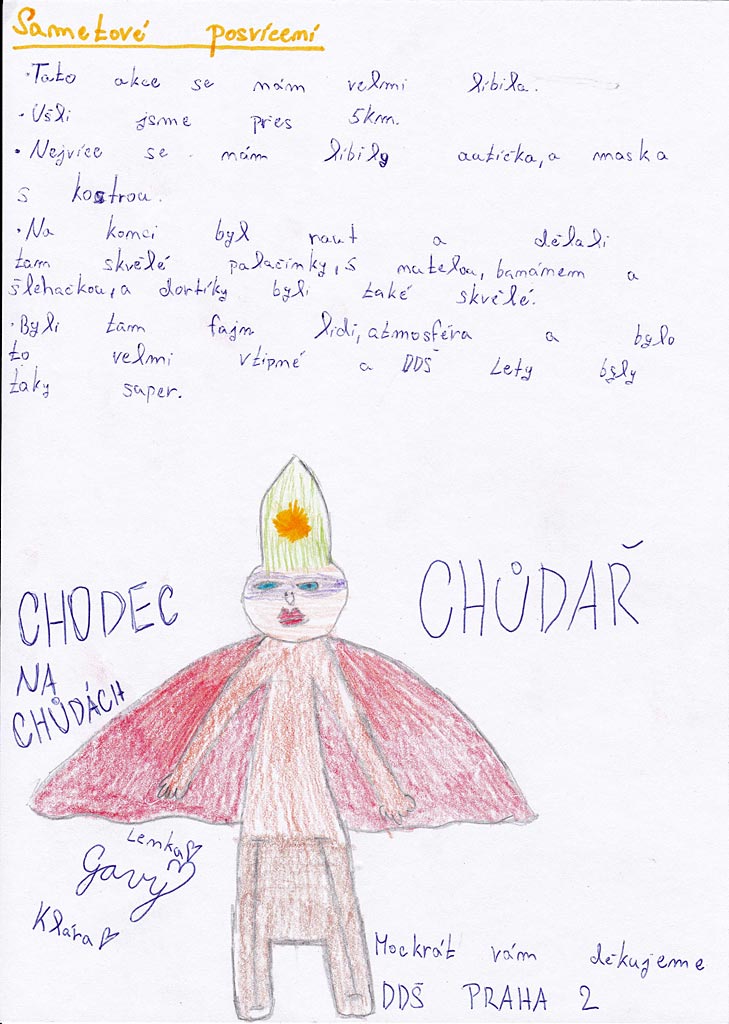 Sametové posvícemí
·Tato akce se mám velmi líbila.
·Ušli jsme pres 5km.
·Nejvíce se mám líbily autíčka, a maska
s kostrou.
·Na komci byl raut a dělali
tam skvělé palačinky, s mutelou, bamámem a
šlehačkou, a dortíky byli také skvělé.
·Byli tam fajm lidi, atmosféra a bylo
to velmi vtipmé a DDŠ Lety byly
taky super.
CHODEC
NA
CHŮDÁCH
CHŮDAŘ
Lemka
Gavy
Klára
Mockrát vám děkujeme
DDŠ PRAHA 2